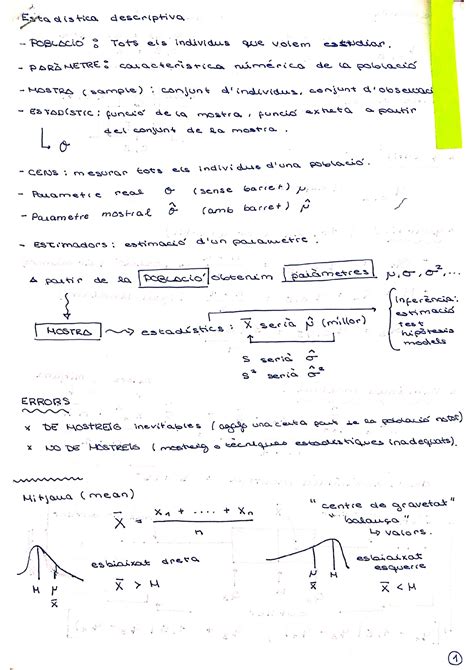 Estadística descriptiva
- POBLACIÓ : Tots els individus que volem estudiar.
- PARÀMETRE : característica numérica de la població
- MOSTRA (sample) : conjunt d'individus, conjunt d'observaci
- ESTADÍSTIC : funció de la mostra, funció extreta a partir
del conjunt de la mostra.
σ
- CENS : mesurar tots els individus d'una població.
- Parametre real σ (sense barret) μ
- Parametre mostral σ̂ (amb barret) μ̂
- ESTIMADORS : estimació d'un parametre.
A partir de la POBLACIÓ obtenim paràmetres μ, σ, σ², ...
MOSTRA estadístics : X̄ seria μ̂ (millor)
S seria σ̂
S² seria σ̂²
inferència:
estimació
test
hipòtesis
models
ERRORS
x DE MOSTREIG inevitables (agafo una certa part de la població no tot)
x NO DE MOSTREIG (mostreig o tècniques estadístiques inadequats).
Mitjana (mean)
X̄ = x₁ + .... + xₙ
n
"centre de gravetat"
"balança"
↳ valors.
esbiaixat dreta
X̄ > M
M μ
X̄
esbiaixat
esquerre
X̄ < M
μ M
X̄
1